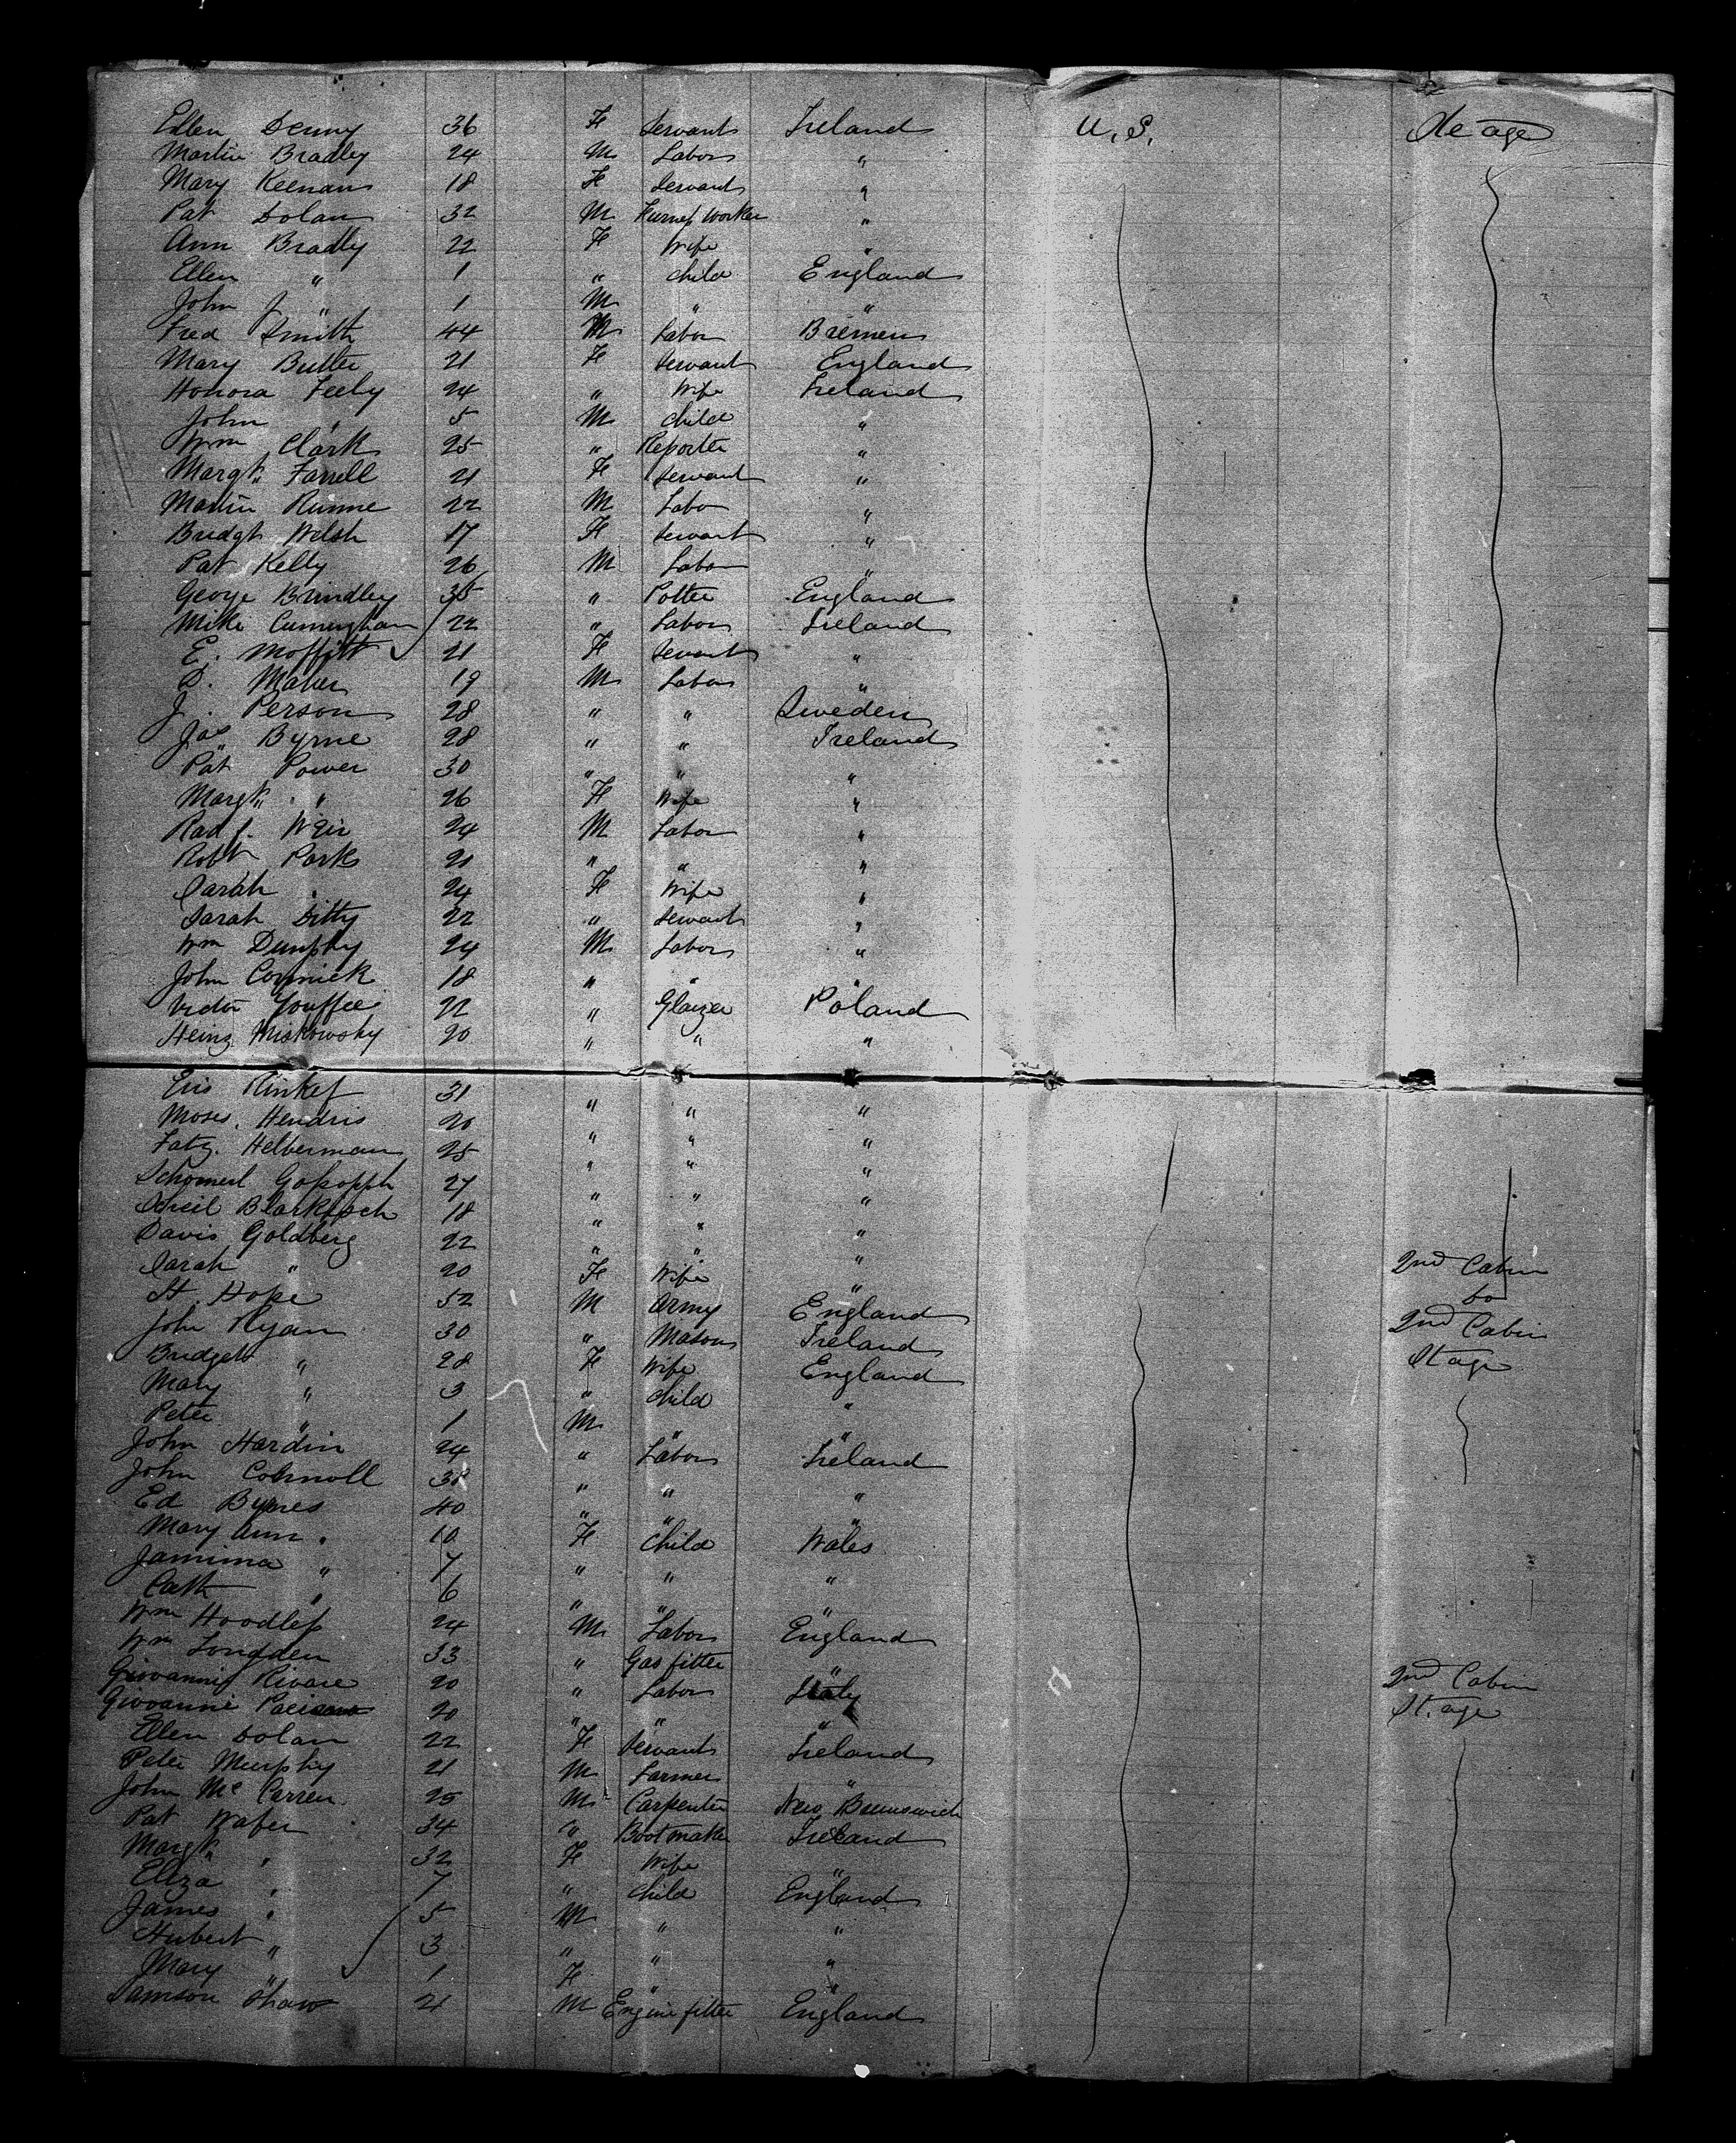 Ellen Denny 36 F Servant Ireland U.S. Ste age
Martin Bradley 24 M Labor "
Mary Keenan 18 F Servant "
Pat Dolan 32 M Worker "
Ann Bradly 22 F Wife "
Ellen " 1 " Child England
John J " 1 M " "
Fred Smith 44 M Labor Bremen
Mary Butter 21 F Servant England
Honora Feely 24 " Wife Ireland
John " 5 M Child "
Wm Clark 25 " Reporter "
Margt. Farrell 21 F Servant "
Martin 22 M Labor "
Bridgt Welsh 17 F Servant "
Pat Kelly 26 M Labor "
George Brindley 35 " Potter England
Mike Cunningham 22 " Labor Ireland
E. Moffitt 21 F Servant "
D. Maher 19 M Labor "
J. Person 28 " " Sweden
Jas Byrne 28 " " Ireland
Pat Power 30 " " "
Margt. " 26 F Wife "
Weir 24 M Labor "
Robt Park 21 " " "
Sarah " 24 F Wife "
Sarah Ditty 22 " Servant "
Wm Dunphy 24 M Labor "
John Cormick 18 " " "
Victor Youffee 22 " Glazier Poland
Heinz. Miskowsky 20 " " "
31 " " "
Moses. Hendris 20 " " "
Helberman 25 " " "
27 " " "
18 " " "
Davis Goldberg 22 " " "
Sarah " 20 F Wife " 2nd Cabin
H. Hope 52 M Army England do
John Ryan 30 " Mason Ireland 2nd Cabin
Bridget " 28 F Wife England Stage
Mary " 3 " Child "
Peter " 1 M " "
John Hardin 24 " Labor Ireland
John Connoll 38 " " "
Ed Byrnes 40 " " "
Mary Ann " 10 F Child Wales
Jamima " 7 " " "
Cath " 6 " " "
Wm Hoodless 24 M Labor England
Wm Longden 33 " Gas fitter " 2nd Cabin
Giovanni Rivare 20 " Labor Italy St. age
Giovanni 20 " " "
Ellen Dolan 22 F Servant Ireland
Peter Murphy 21 M Farmer "
John Mc Carren 25 M Carpenter New Brunswick
Pat Wafer 34 " Bootmaker Ireland
Margt. " 32 F Wife "
Eliza " 7 " Child England
James " 5 M " "
Hubert " 3 " " "
Mary " 1 F " "
Samson Shaw 21 M Engine fitter England